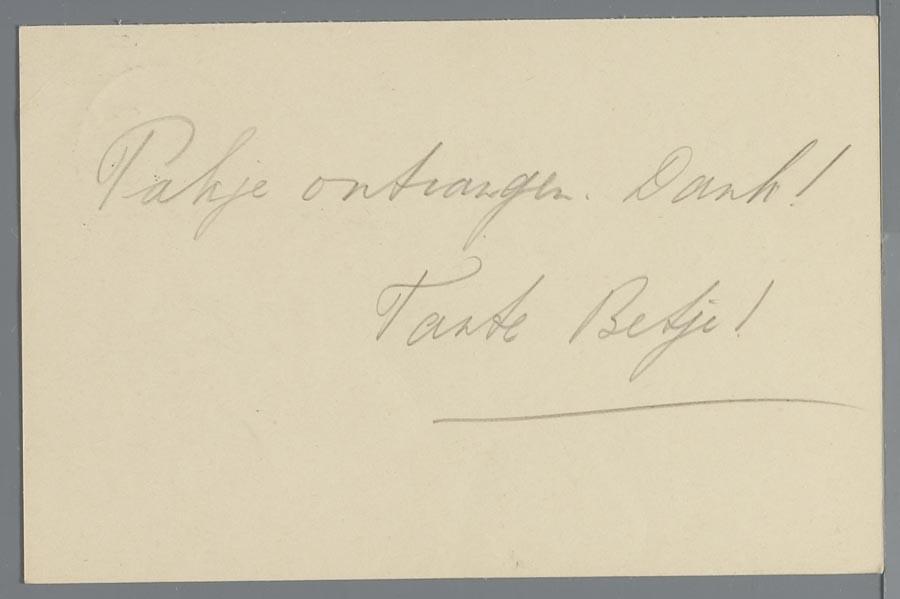 Pakje ontvangen. Dank!
Tante Betje!